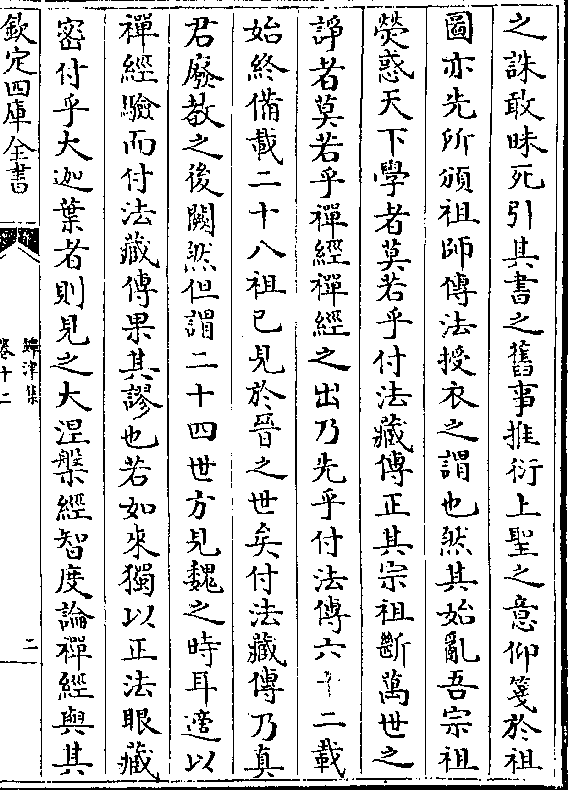 之誅敢昧死引其書之舊事推衍上聖之意仰箋於祖
圖亦先所頒祖師傳法授衣之謂也然其始亂吾宗祖
熒惑天下學者莫若乎付法藏傳正其宗祖斷萬世之
諍者莫若乎禪經禪經之出乃先乎付法傳六十二載
始終備載二十八祖已見於晉之世矣付法藏傳乃真
君廢教之後闕然但謂二十四世方見魏之時耳適以
禪經驗而付法藏傳果其謬也若如來獨以正法眼藏
密付乎大迦葉者則見之大涅槃經智度論禪經與其
欽定四庫全書
鐔津集
卷十二
二